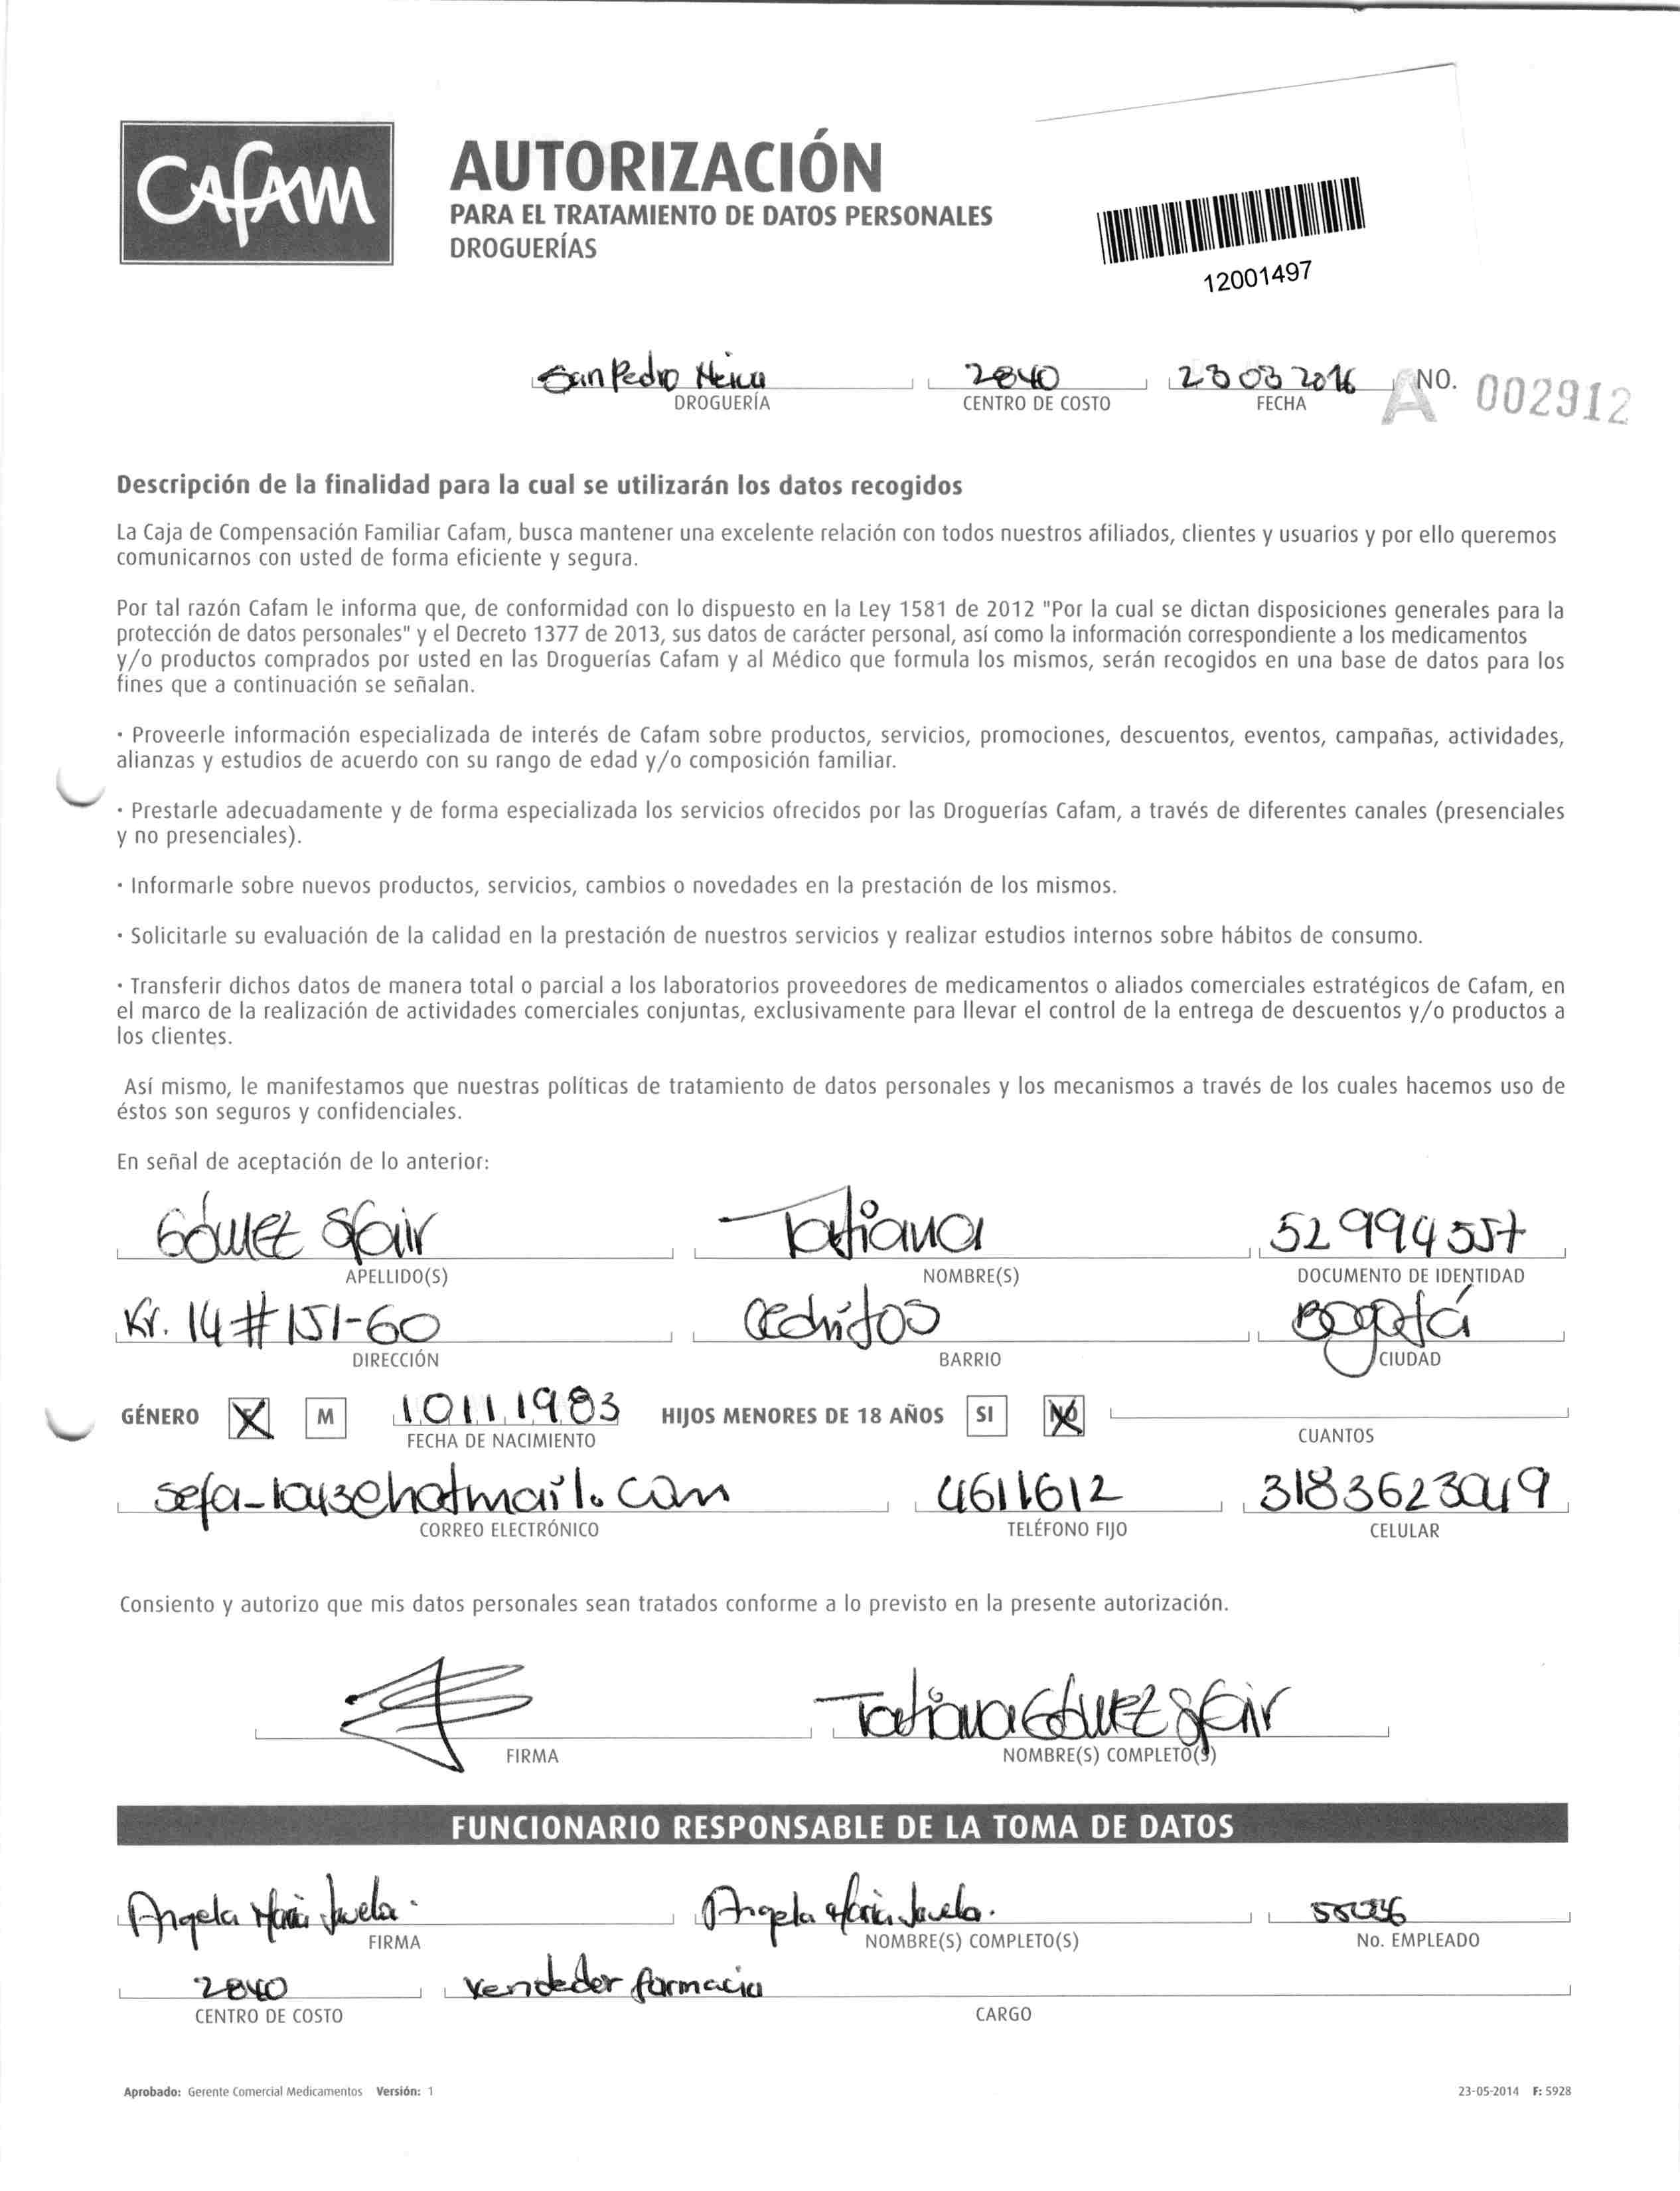 CAFAM
AUTORIZACIÓN
PARA EL TRATAMIENTO DE DATOS PERSONALES
DROGUERÍAS
12001497
San Pedro 2840 23 03 2016 NO. A 002912
DROGUERÍA CENTRO DE COSTO FECHA
Descripción de la finalidad para la cual se utilizarán los datos recogidos
La Caja de Compensación Familiar Cafam, busca mantener una excelente relación con todos nuestros afiliados, clientes y usuarios y por ello queremos
comunicarnos con usted de forma eficiente y segura.
Por tal razón Cafam le informa que, de conformidad con lo dispuesto en la Ley 1581 de 2012 "Por la cual se dictan disposiciones generales para la
protección de datos personales" y el Decreto 1377 de 2013, sus datos de carácter personal, así como la información correspondiente a los medicamentos
y/o productos comprados por usted en las Droguerías Cafam y al Médico que formula los mismos, serán recogidos en una base de datos para los
fines que a continuación se señalan.
· Proveerle información especializada de interés de Cafam sobre productos, servicios, promociones, descuentos, eventos, campañas, actividades,
alianzas y estudios de acuerdo con su rango de edad y/o composición familiar.
· Prestarle adecuadamente y de forma especializada los servicios ofrecidos por las Droguerías Cafam, a través de diferentes canales (presenciales
y no presenciales).
· Informarle sobre nuevos productos, servicios, cambios o novedades en la prestación de los mismos.
· Solicitarle su evaluación de la calidad en la prestación de nuestros servicios y realizar estudios internos sobre hábitos de consumo.
· Transferir dichos datos de manera total o parcial a los laboratorios proveedores de medicamentos o aliados comerciales estratégicos de Cafam, en
el marco de la realización de actividades comerciales conjuntas, exclusivamente para llevar el control de la entrega de descuentos y/o productos a
los clientes.
Así mismo, le manifestamos que nuestras políticas de tratamiento de datos personales y los mecanismos a través de los cuales hacemos uso de
éstos son seguros y confidenciales.
En señal de aceptación de lo anterior:
Gómez Sfair Tatiana 52994557
APELLIDO(S) NOMBRE(S) DOCUMENTO DE IDENTIDAD
Kr. 14 # 151-60 Cedritos Bogotá
DIRECCIÓN BARRIO CIUDAD
GÉNERO X M 10 11 1983 HIJOS MENORES DE 18 AÑOS SI NO
FECHA DE NACIMIENTO CUANTOS
4611612 3183623049
CORREO ELECTRÓNICO TELÉFONO FIJO CELULAR
Consiento y autorizo que mis datos personales sean tratados conforme a lo previsto en la presente autorización.
Tatiana Gómez Sfair
FIRMA NOMBRE(S) COMPLETO(S)
FUNCIONARIO RESPONSABLE DE LA TOMA DE DATOS
Angela María Angela María
FIRMA NOMBRE(S) COMPLETO(S) No. EMPLEADO
2840 Vendedor farmacia
CENTRO DE COSTO CARGO
Aprobado: Gerente Comercial Medicamentos Versión: 1 23-05-2014 F: 5928